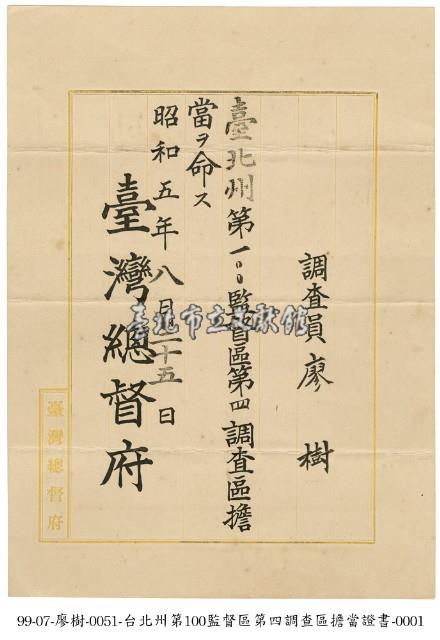 調查員廖樹
臺北州第一〇〇監督區第四調查區擔
當ヲ命ス
昭和五年八月二十五日
臺灣總督府
臺灣總督府
臺北市立文獻館
99-07-廖樹-0051-台北州第100監督區第四調查區擔當證書-0001